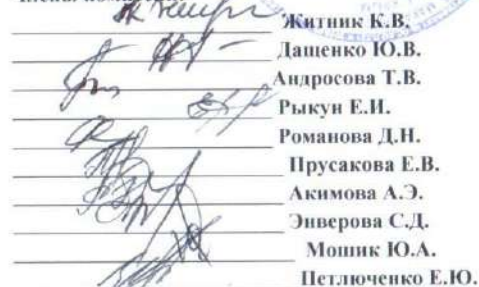 Житник К.В.
Дащенко Ю.В.
Андросова Т.В.
Рыкун Е.И.
Романова Д.Н.
Прусакова Е.В.
Акимова А.Э.
Энверова С.Д.
Мошик Ю.А.
Петлюченко Е.Ю.